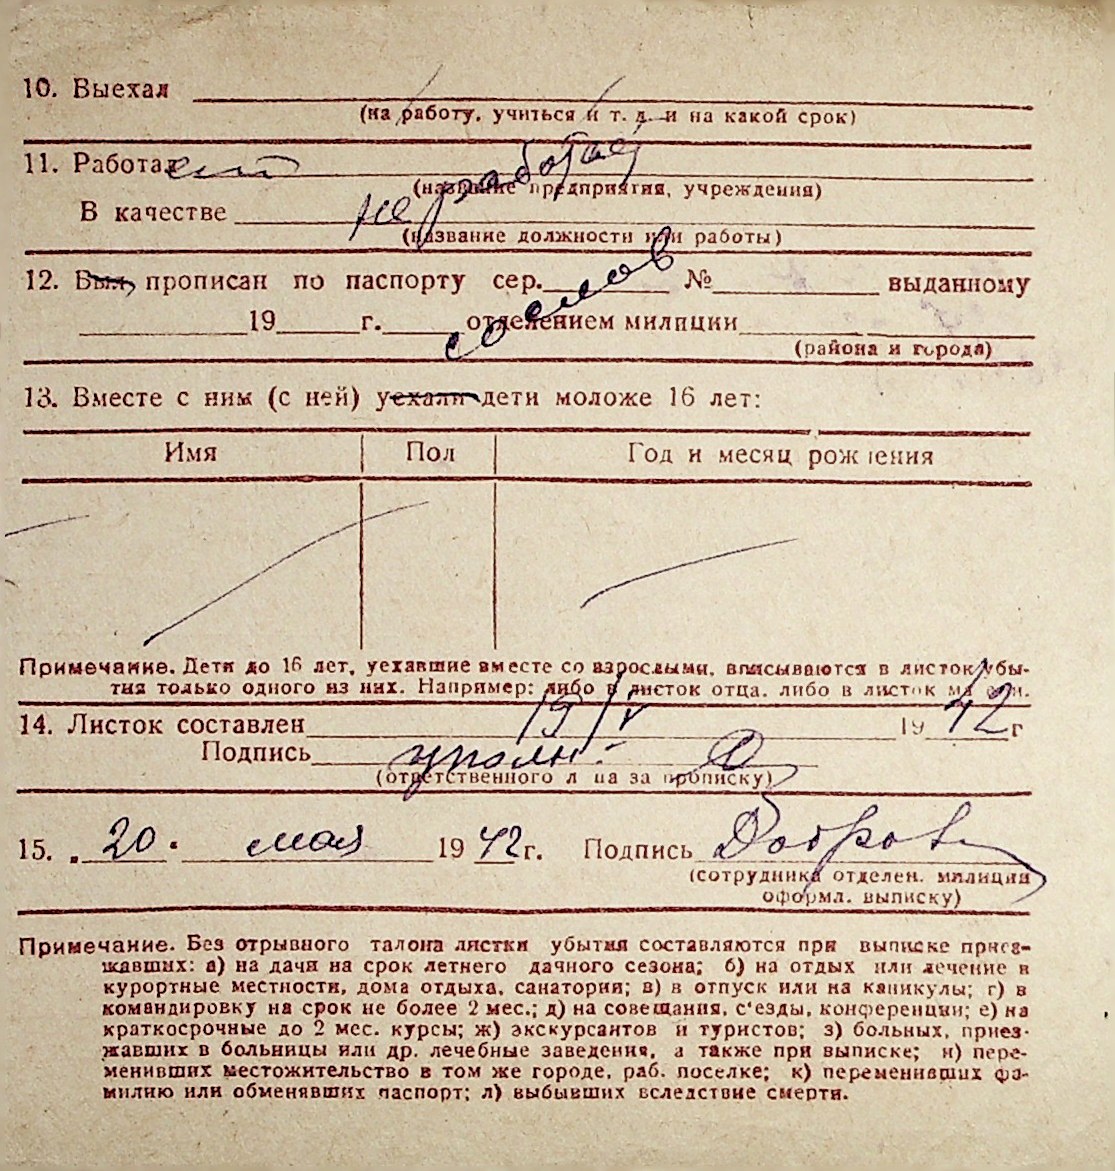 10. Выехал
(на работу, учиться и т. д. и на какой срок)
11. Работал
не работает
(название предприятия, учреждения)
В качестве
(название должности или работы)
12. Был прописан по паспорту сер. № выданному
19 г. отделением милиции
(района и города)
13. Вместе с ним (с ней) уехали дети моложе 16 лет:
Имя Пол Год и месяц рождения
Примечание. Дети до 16 лет, уехавшие вместе со взрослыми, вписываются в листок убы-
тия только одного из них. Например: либо в листок отца, либо в листок матери.
14. Листок составлен 19/V 1942 г
Подпись уполн.
(ответственного лица за прописку)
15. 20. мая 1942 г. Подпись
(сотрудника отделен. милиции
оформл. выписку)
Примечание. Без отрывного талона листки убытия составляются при выписке приез-
жавших: а) на дачи на срок летнего дачного сезона; б) на отдых или лечение в
курортные местности, дома отдыха, санатории; в) в отпуск или на каникулы; г) в
командировку на срок не более 2 мес.; д) на совещания, с'езды, конференции; е) на
краткосрочные до 2 мес. курсы; ж) экскурсантов и туристов; з) больных, приез-
жавших в больницы или др. лечебные заведения, а также при выписке; и) пере-
менивших местожительство в том же городе, раб. поселке; к) переменивших фа-
милию или обменявших паспорт; л) выбывших вследствие смерти.